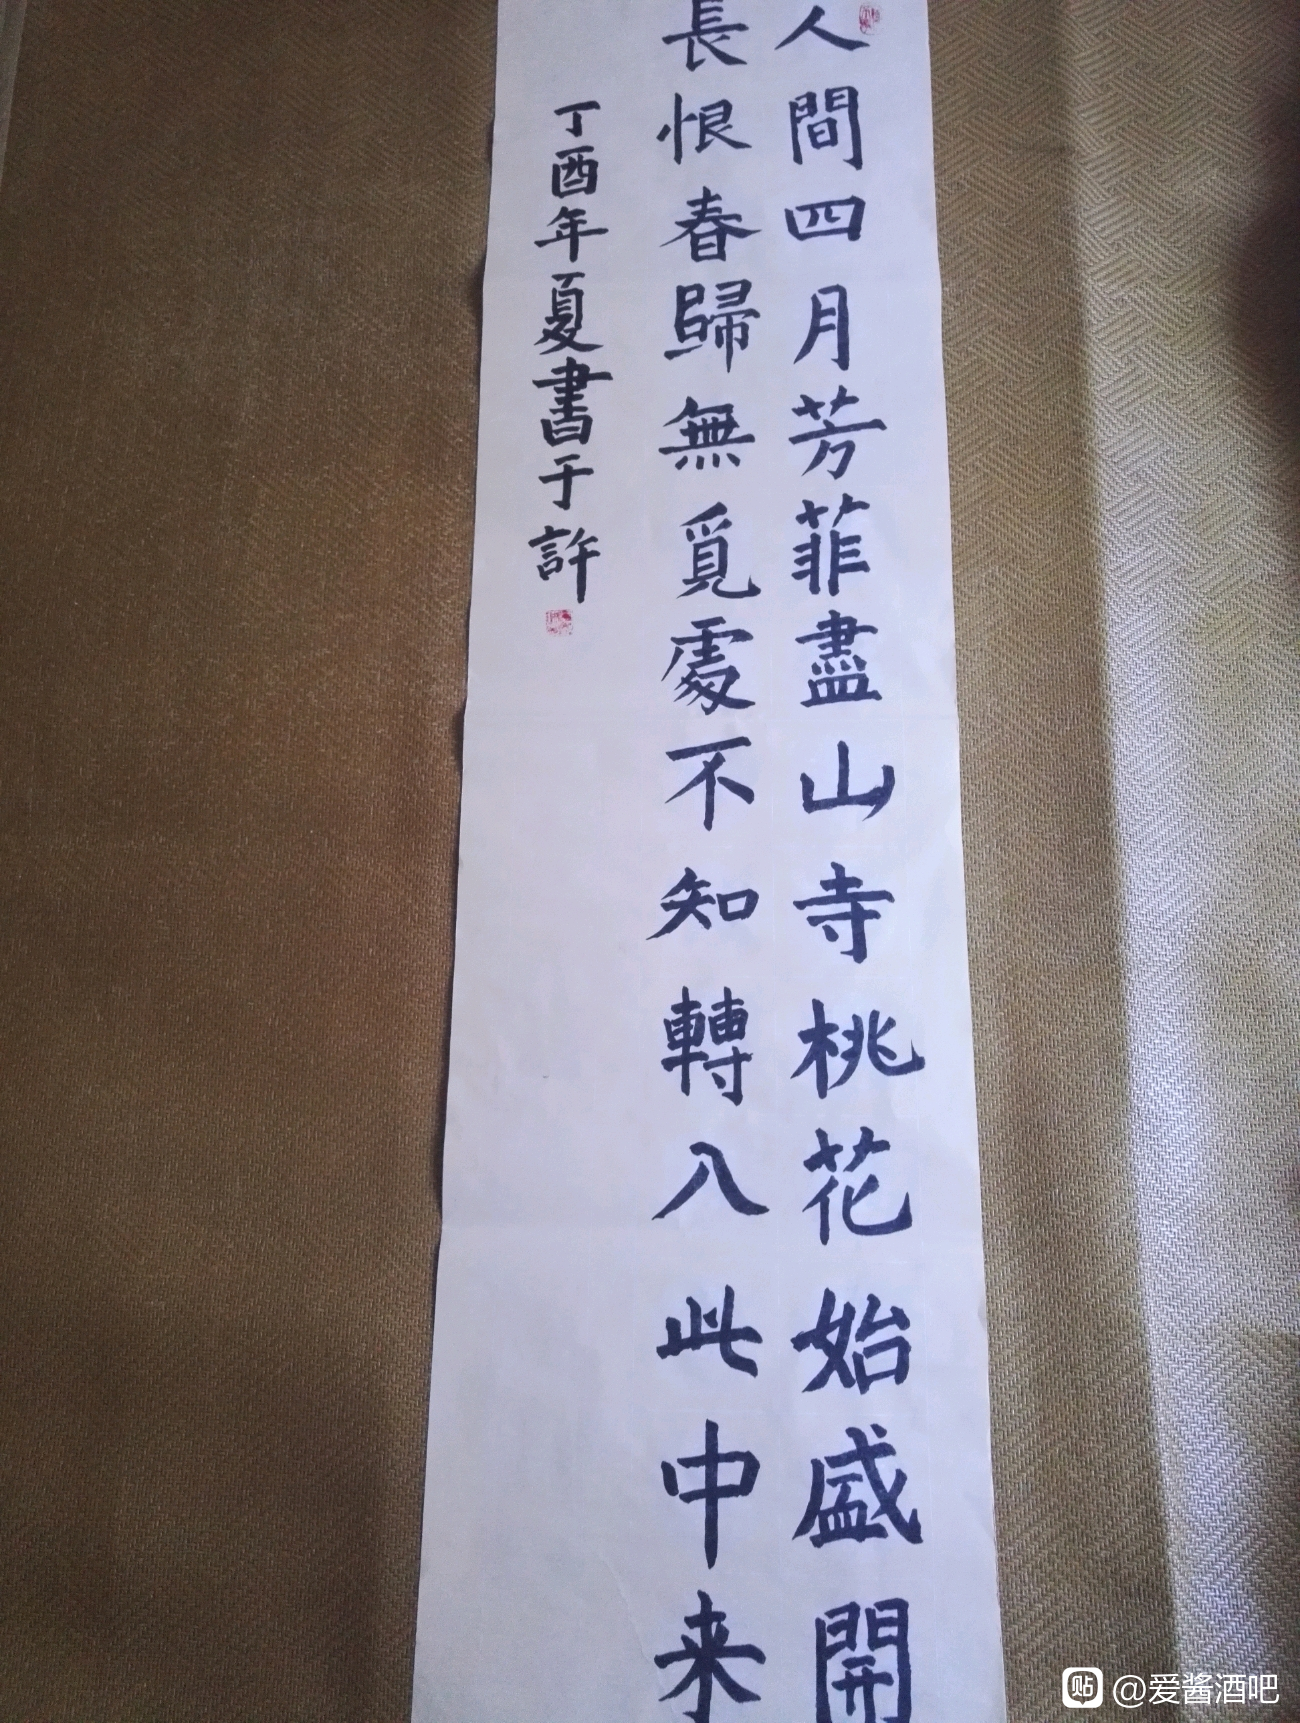 人間四月芳菲盡山寺桃花始盛開
長恨春歸無覓處不知轉入此中来
丁酉年夏書于許
貼 @爱酱酒吧